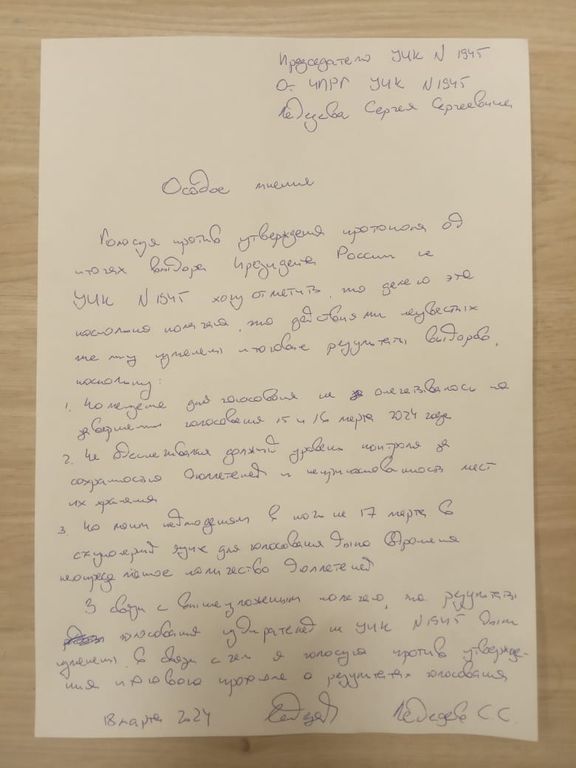 Председателю УИК N 1945
От ЧПРГ УИК N 1945
Лебедева Сергея Сергеевича
Особое мнение
Голосуя против утверждения протокола об
итогах выбора Президента России на
УИК N 1945 хочу отметить, что делаю это
поскольку полагаю, что действиями неизвестных
мне лиц изменены итоговые результаты выборов,
поскольку:
1. Помещение для голосования не опечатывалось по
завершении голосования 15 и 16 марта 2024 года
2. Не обеспечивался должный уровень контроля за
сохранностью бюллетеней и мест
их хранения
3. По моим наблюдениям в ночь на 17 марта в
ящик для голосования было вброшено
количество бюллетеней
В связи с вышеизложенным полагаю, что результаты
голосования избирателей на УИК N 1945 были
изменены в связи с чем я голосую против утвержде-
ния итогового протокола о результатах голосования
18 марта 2024 Лебедев С.С.